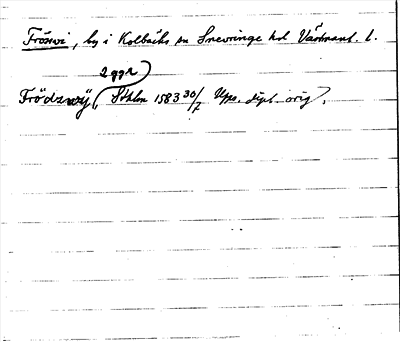 Frösvi, by i Kolbäcks sn Snevringe hd Västmanl. l.
2 ggr
Frödzwij (Sthlm 1583 30/7 Upps. dipl. orig),